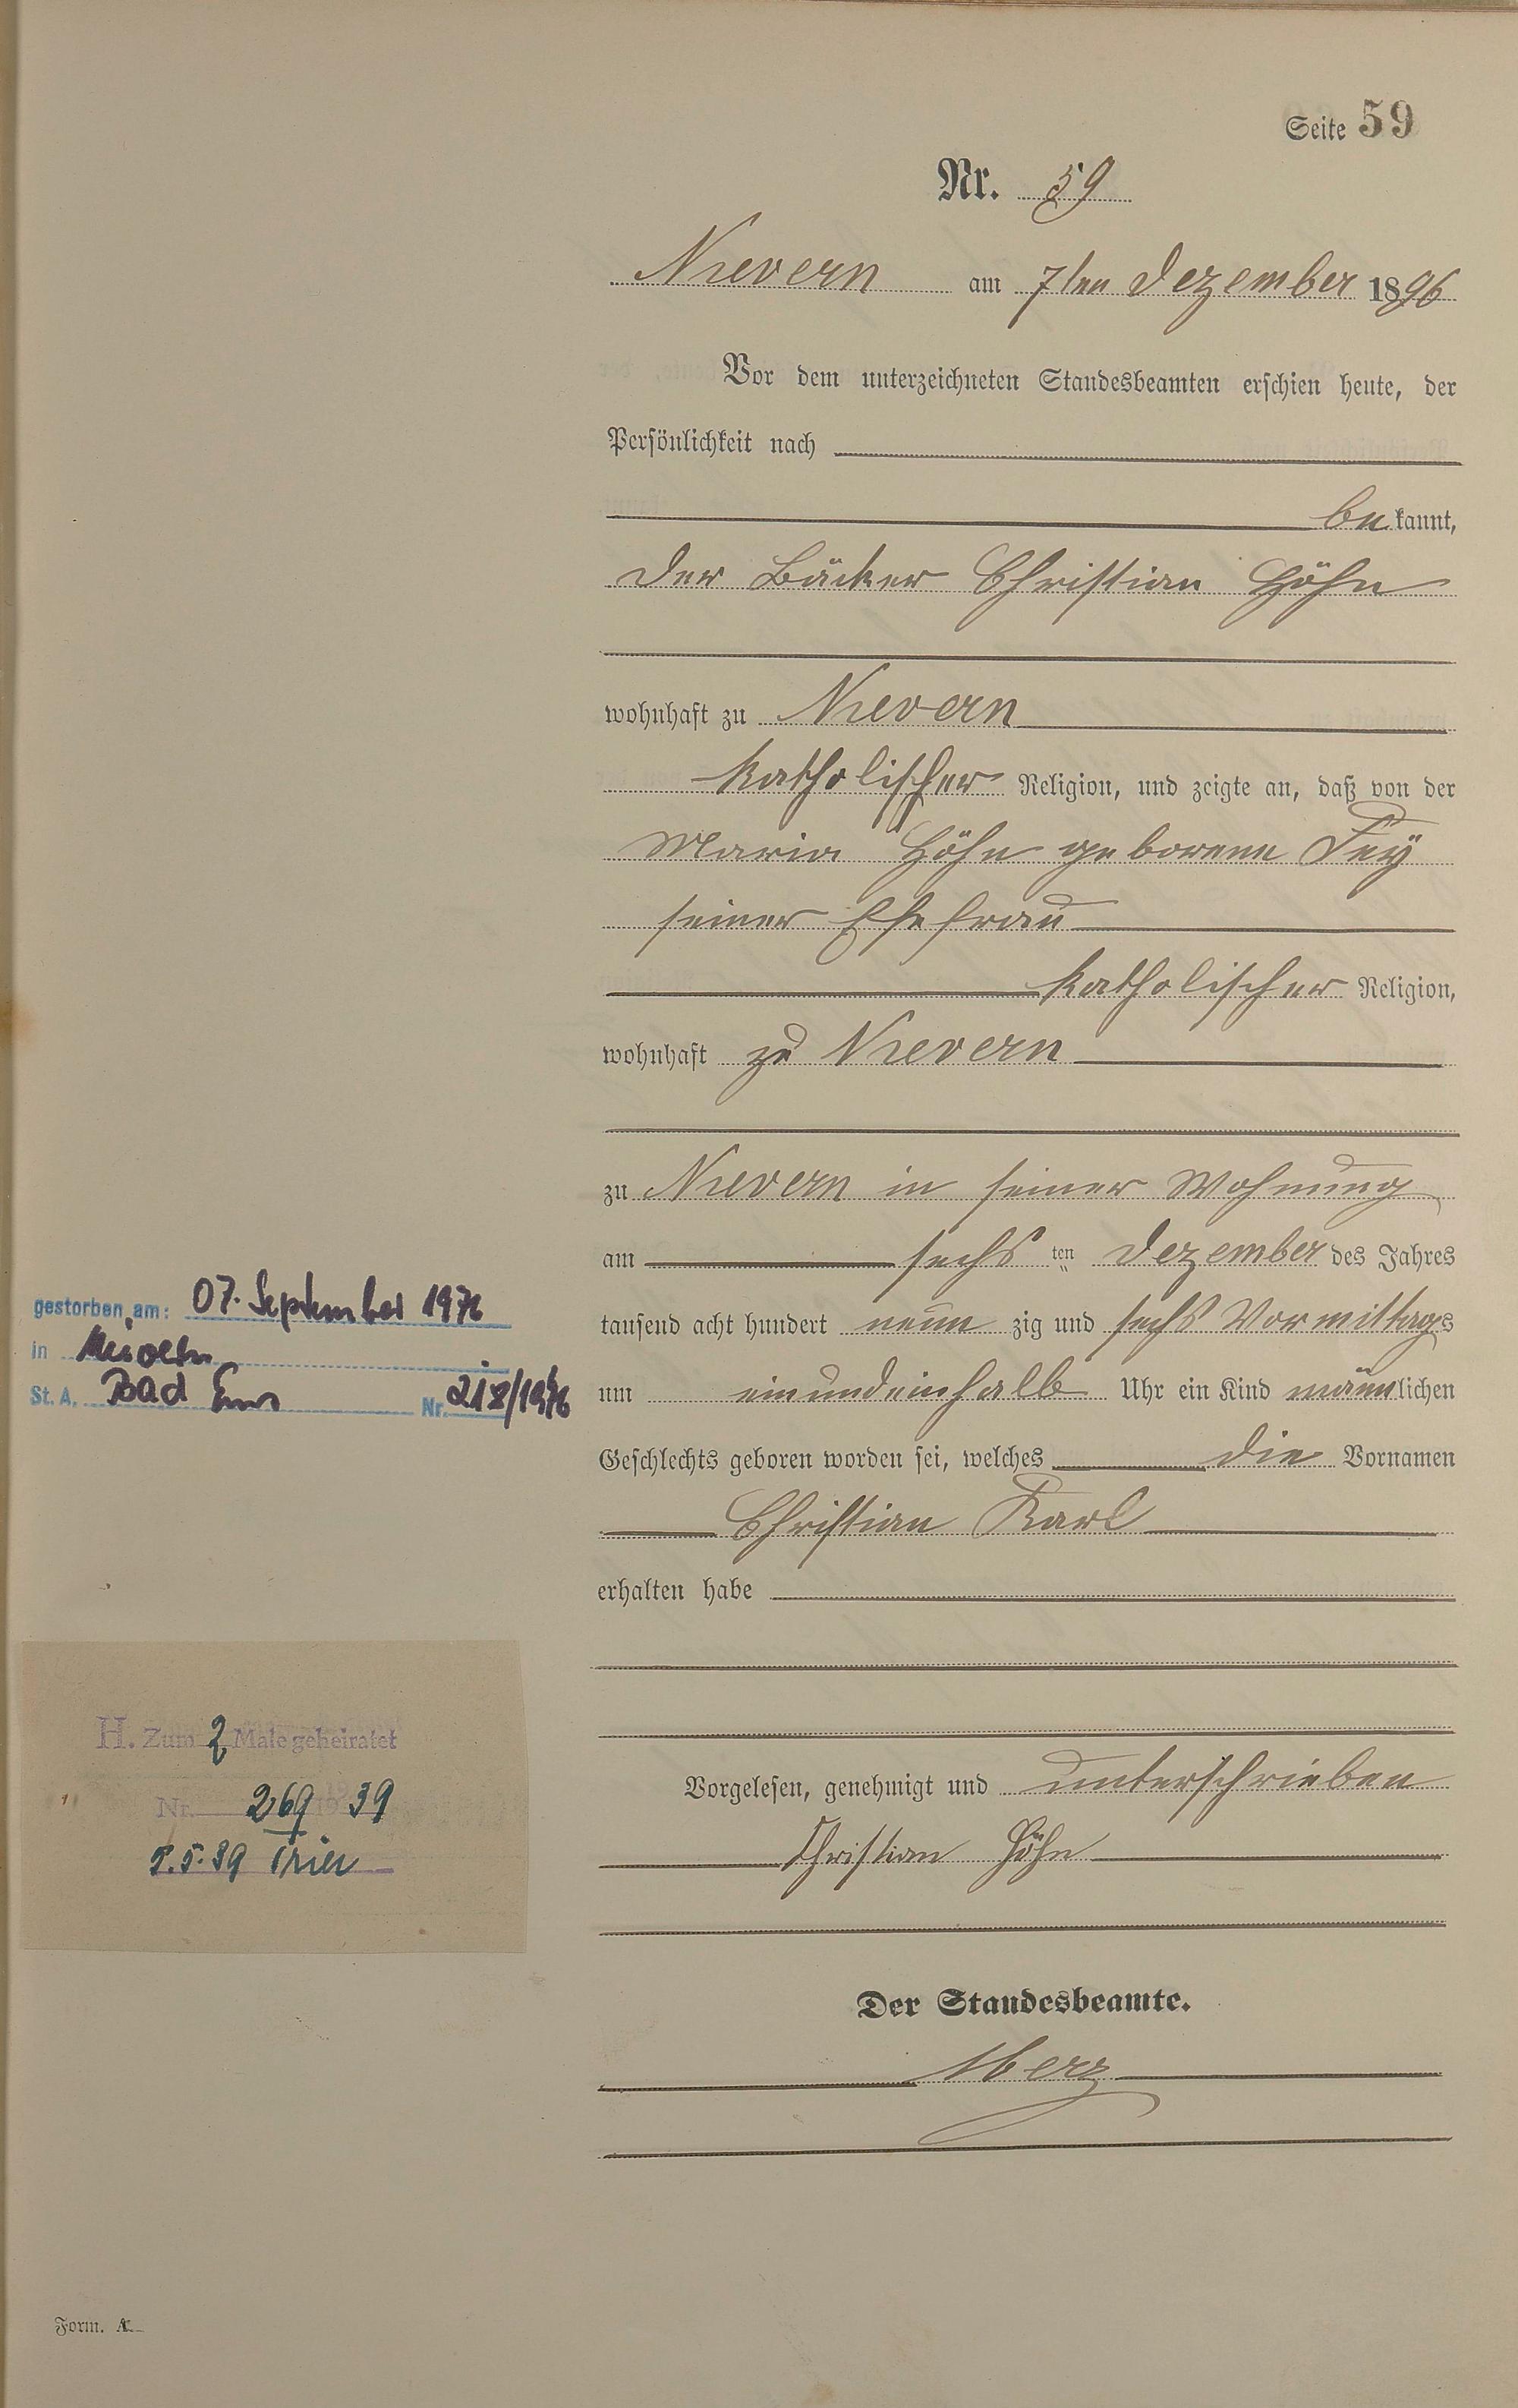 Seite 59
Nr. 59
Nievern am 7ten Dezember 1896
Vor dem unterzeichneten Standesbeamten erschien heute, der
Persönlichkeit nach
bekannt,
der Bäcker Christian Höhn
wohnhaft zu Nievern
katholischer Religion, und zeigte an, daß von der
Maria Höhn geborene Fey
seiner Ehefrau
katholischer Religion,
wohnhaft zu Nievern
zu Nievern in seiner Wohnung
am sechs ten Dezember des Jahres
tausend acht hundert neun zig und sechs Vormittags
um einundeinhalb Uhr ein Kind männlichen
Geschlechts geboren worden sei, welches die Vornamen
Christian Karl
erhalten habe
Vorgelesen, genehmigt und unterschrieben
Christian Höhn
Der Standesbeamte.
gestorben am: 07. September 1976
in Nievern
St. A. Bad Ems Nr. 218/1976
H. Zum 2 Male geheiratet
Nr. 269 39
5.39 Trier
Form. A.